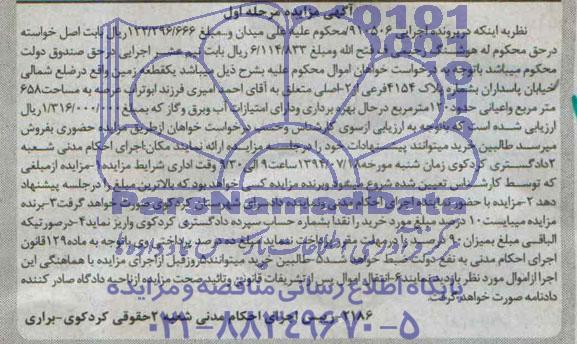 آگهی مزایده مرحله اول
نظر به اینکه در پرونده اجرایی ۹۱۰۵۰۶/محکوم علیه علی میدان و..مبلغ ۱۲۲/۳۹۶/۶۶۶ریال بابت اصل خواسته
در حق محکوم له هوشنگ رحیمی ف فتح الله ومبلغ ۶/۱۱۴/۸۳۳ ریال بابت نیم عشر اجرایی در حق صندوق دولت
محکوم میباشد باتوجه به درخواست خواهان اموال محکوم علیه بشرح ذیل میباشد یکقطعه زمین واقع در ضلع شمالی
خیابان پاسداران بشماره پلاک ۴۱۵۴فرعی از ۲-اصلی متعلق به آقای احمد امیری فرزند ابوتراب عرصه به مساحت۶۵۸
متر مربع واعیانی حدود ۱۲۰مترمربع درحال بهره برداری ودارای امتیازات آب وبرق وگاز که بمبلغ ۱/۳۱۶/۰۰۰/۰۰۰ریال
ارزیابی شده است که باتوجه به ارزیابی ازسوی کارشناس وحسب درخواست خواهان ازطریق مزایده حضوری بفروش
میرسد طالبین خرید میتوانند پیشنهادات خود را درجلسه مزایده ارائه نمایند مکان:اجرای احکام مدنی شعبه
۲دادگستری کردکوی زمان شنبه مورخه ۱۳۹۴/۰۷/ ساعت۹ الی ۹/۳۰ وقت اداری شرایط مزایده ۱-مزایده ازمبلغی
که توسط کارشناس تعیین شده شروع میشود وبرنده مزایده کسی خواهد بود که بالاترین مبلغ را درجلسه پیشنهاد
دهد ۲-مزایده با حضور نماینده اجرای احکام مدنی ونماینده دادسرای شهرستان کردکوی صورت خواهد گرفت۳-برنده
مزایده میبایست ۱۰ درصد مبلغ مورد خرید را نقدا بشماره حساب سپرده دادگستری کردکوی واریز نماید۴-درصورتیکه
الباقی مبلغ بمیزان ۹۰ درصد را در مهلت مقرر پرداخت ننماید مبلغ ده درصد پرداختی وی باتوجه به ماده۱۲۹قانون
اجرای احکام مدنی به نفع دولت ضبط خواهد شد۵-طالبین خرید میتوانند۵روزقبل ازاجرای مزایده با هماهنگی این
اجرا ازاموال مورد نظر بازدید نمایند۶-انتقال اموال پس ازتشریفات قانونی وتائید صحت مزایده ازناحیه دادگاه صادر کننده
دادنامه صورت خواهد گرفت.
۲۱۸۶-رییس اجرای احکام مدنی شعبه ۲حقوقی کردکوی-براری
ParsNamadData
پایگاه اطلاع رسانی مناقصه و مزایده
۰۲۱-۸۸۳۴۹۶۷۰-۵